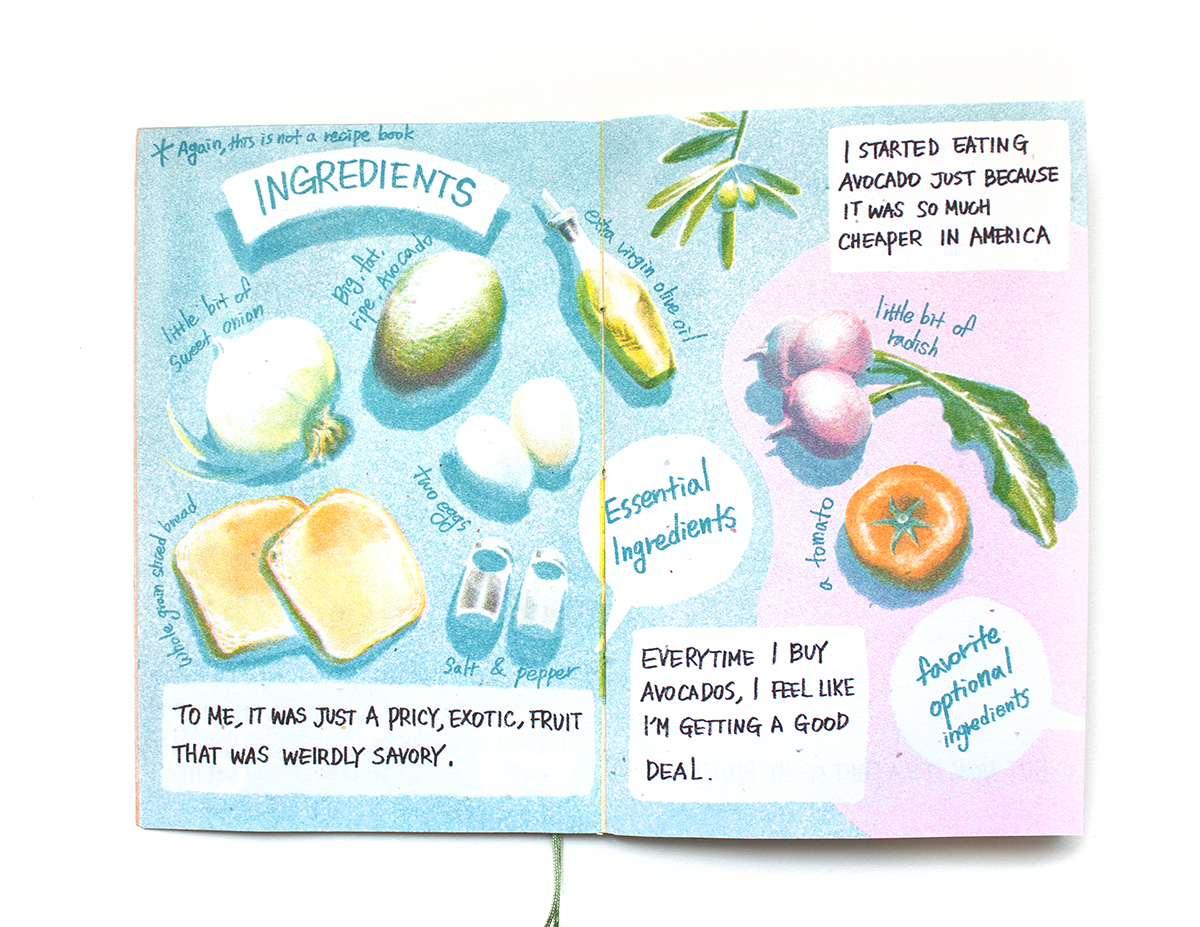 * Again, this is not a recipe book
INGREDIENTS
little bit of
sweet onion
Big, fat,
ripe, Avocado
extra virgin olive oil
two eggs
whole grain sliced bread
Salt, & pepper
TO ME, IT WAS JUST A PRICY, EXOTIC, FRUIT
THAT WAS WEIRDLY SAVORY.
I STARTED EATING
AVOCADO JUST BECAUSE
IT WAS SO MUCH
CHEAPER IN AMERICA
little bit of
radish
Essential
Ingredients
a tomato
EVERYTIME I BUY
AVOCADOS, I FEEL LIKE
I'M GETTING A GOOD
DEAL.
favorite
optional
ingredients